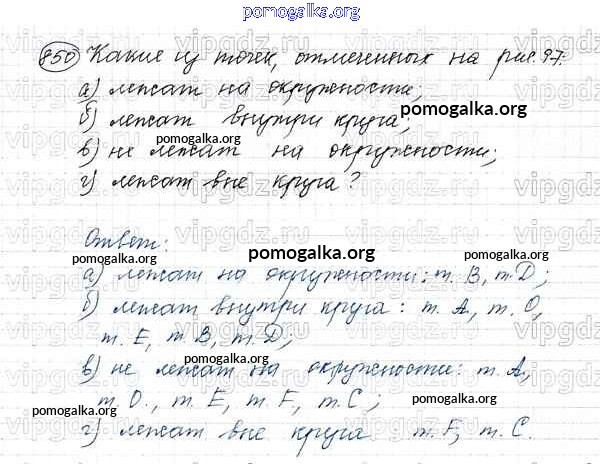 pomogalka.org
850 Какие из точек, отмеченных на рис. 97:
а) лежат на окружности;
pomogalka.org
б) лежат внутри круга;
pomogalka.org
в) не лежат на окружности;
pomogalka.org
г) лежат вне круга?
Ответ:
pomogalka.org
а) лежат на окружности: т. В, т. D;
б) лежат внутри круга: т. А, т. О,
т. Е, т. В, т. D;
pomogalka.org
в) не лежат на окружности: т. А,
т. О., т. Е, т. F, т. С;
pomogalka.org pomogalka.org
г) лежат вне круга т. F, т. С.